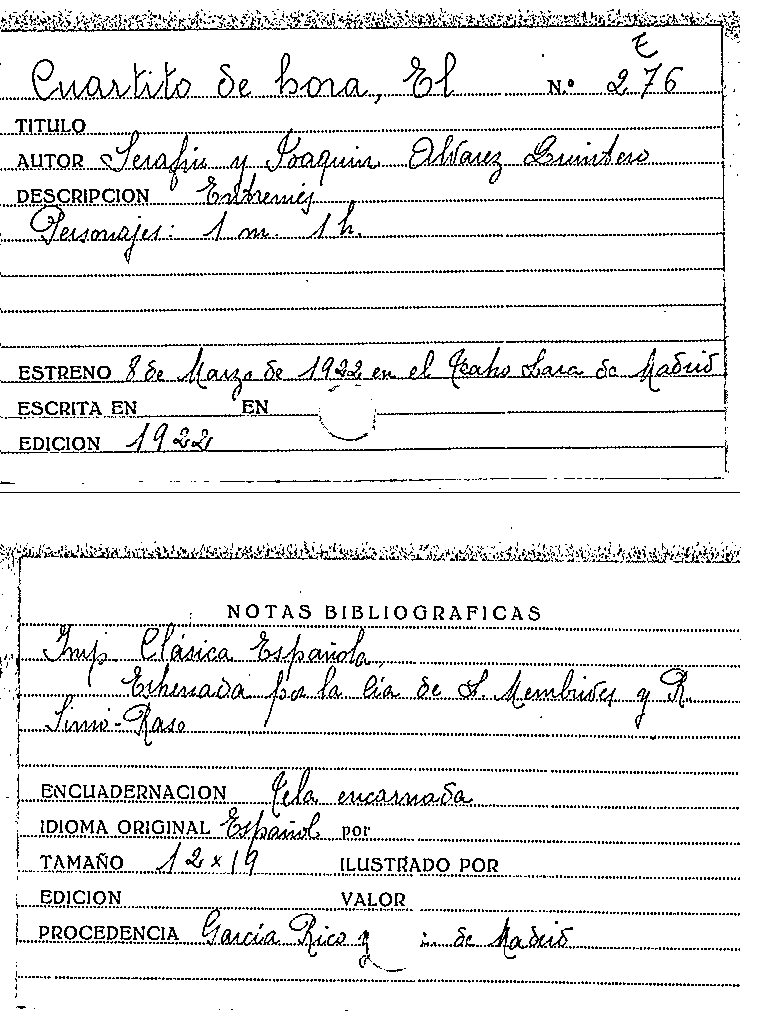 E
Cuartito de hora, El N.º 276
TITULO
AUTOR Serafin y Joaquin Alvarez Quintero
DESCRIPCION Entremés
Personajes: 1 m. 1 h.
ESTRENO 8 de Marzo de 1922 en el Teatro Lara de Madrid
ESCRITA EN EN
EDICION 1922
NOTAS BIBLIOGRAFICAS
Imp Clásica Española,
Estrenada por la Cia de L. Membrives y R.
Simó-Raso
ENCUADERNACION Tela encarnada
IDIOMA ORIGINAL Español por
TAMAÑO 12 x 19 ILUSTRADO POR
EDICION VALOR
PROCEDENCIA García Rico y de Madrid